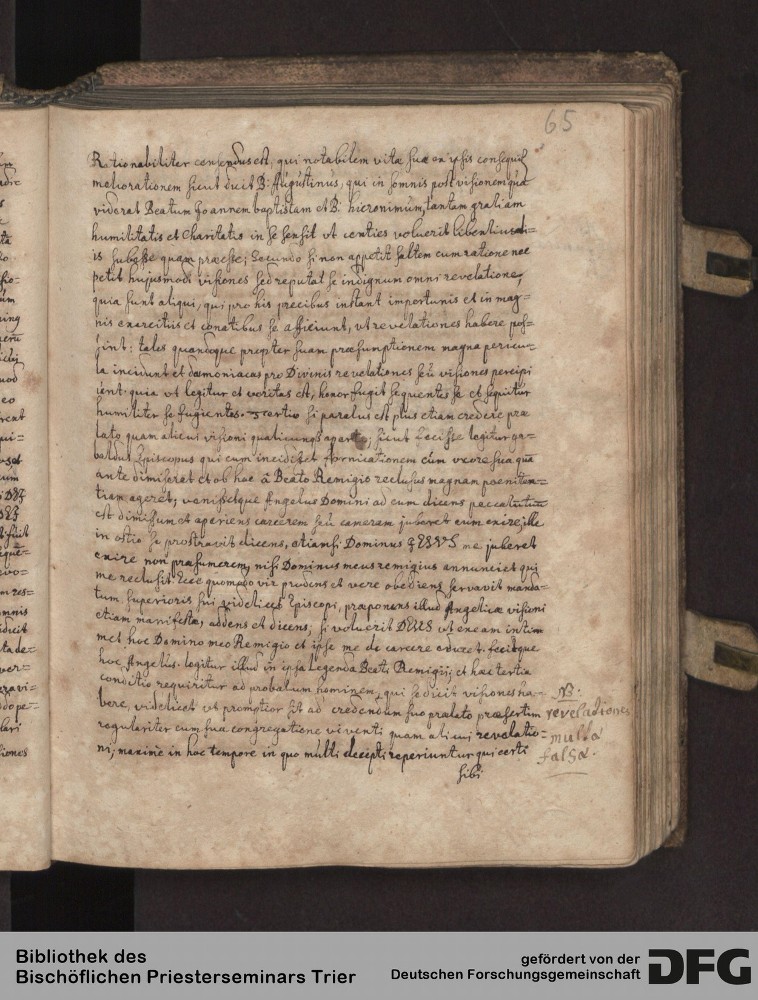 65
Rationabiliter censendus est, qui notabilem vitæ suæ ex ipsis consequit
meliorationem sicut dicit B: Augustinus, qui in somnis post visionem qua
viderat Beatum Joannem baptistam et B: hieronimum, tantam gratiam
humilitatis et Charitatis in se sensit ut centies voluerit libentius ali=
is subesse quam præesse; Secundo si non appetit saltem cum ratione nec
petit hujusmodi visiones sed reputat se indignum omni revelatione,
quia sunt aliqui, qui pro his precibus instant importunis et in mag=
nis exercitiis et conatibus se afficiunt, ut revelationes habere pos=
sint: tales quandoque propter suam præsumptionem magna pericu=
la incidunt et dæmoniacas pro Divinis revelationes seu visiones percipi
unt. quia ut legitur et veritas est, honor fugit sequentes se et sequitur
humiliter se fugientes. tertio si paratus est plus etiam credere præ
lato quam alicui visioni qualicunque aperto; sicut fecisse legitur ge=
baldus Episcopus qui cum incidisset fornicationem cum uxore sua quam
ante dimiserat et ob hoc â Beato Remigio reclusus magnam poeniten=
tiam ageret, venissetque Angelus Domini ad eum dicens peccatum tuum
est dimissum et aperiens carcerem seu cameram juberet eum exire, ille
in ostio se prostravit dicens, etiamsi Dominus JESUS me juberet
exire non præsumerem, nisi Dominus meus remigius annunciet qui
me reclusit. Ecce quomodo vir prudens et vere obediens servavit manda=
tum superioris sui videlicet Episcopi, præponens illud Angelicæ visioni
etiam manifestæ, addens et dicens; si voluerit DEUS ut exeam intim
met hoc Domino meo Remigio et ipse me de carcere educet. fecitque
hoc Angelus. legitur illud in ipsa Legenda Beati Remigii; et hæc tertia
conditio requiritur ad probatum hominem, qui se dicit visiones ha=
bere, videlicet ut promptior sit ad credendum suo prælato præsertim
regulariter cum sua congregatione viventi quam alicui revelatio=
ni; maxime in hoc tempore in quo multi decepti reperiuntur qui certi
sibi
NB.
revelationes
multæ
falsæ.
Bibliothek des
Bischöflichen Priesterseminars Trier
gefördert von der
Deutschen Forschungsgemeinschaft
DFG